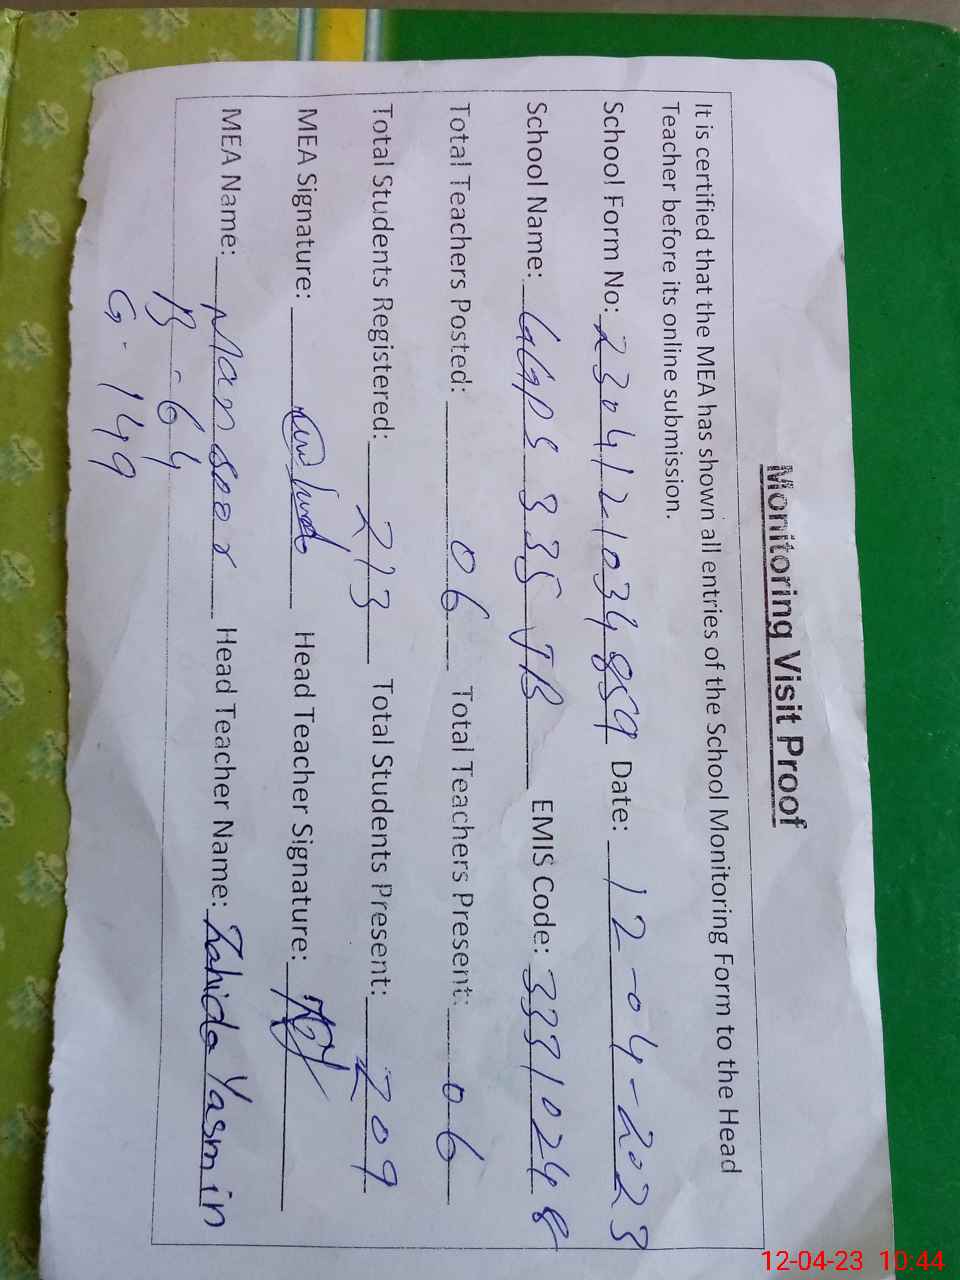 Monitoring Visit Proof
It is certified that the MEA has shown all entries of the School Monitoring Form to the Head
Teacher before its online submission.
School Form No: 2304121034859 Date: 12-04-2023
School Name: GGPS 335 JB EMIS Code: 33310248
Total Teachers Posted: 06 Total Teachers Present: 06
Total Students Registered: 213 Total Students Present: 209
MEA Signature: Head Teacher Signature:
MEA Name: Mansoor Head Teacher Name: Zahida Yasmin
B - 64
G - 149
12-04-23 10:44